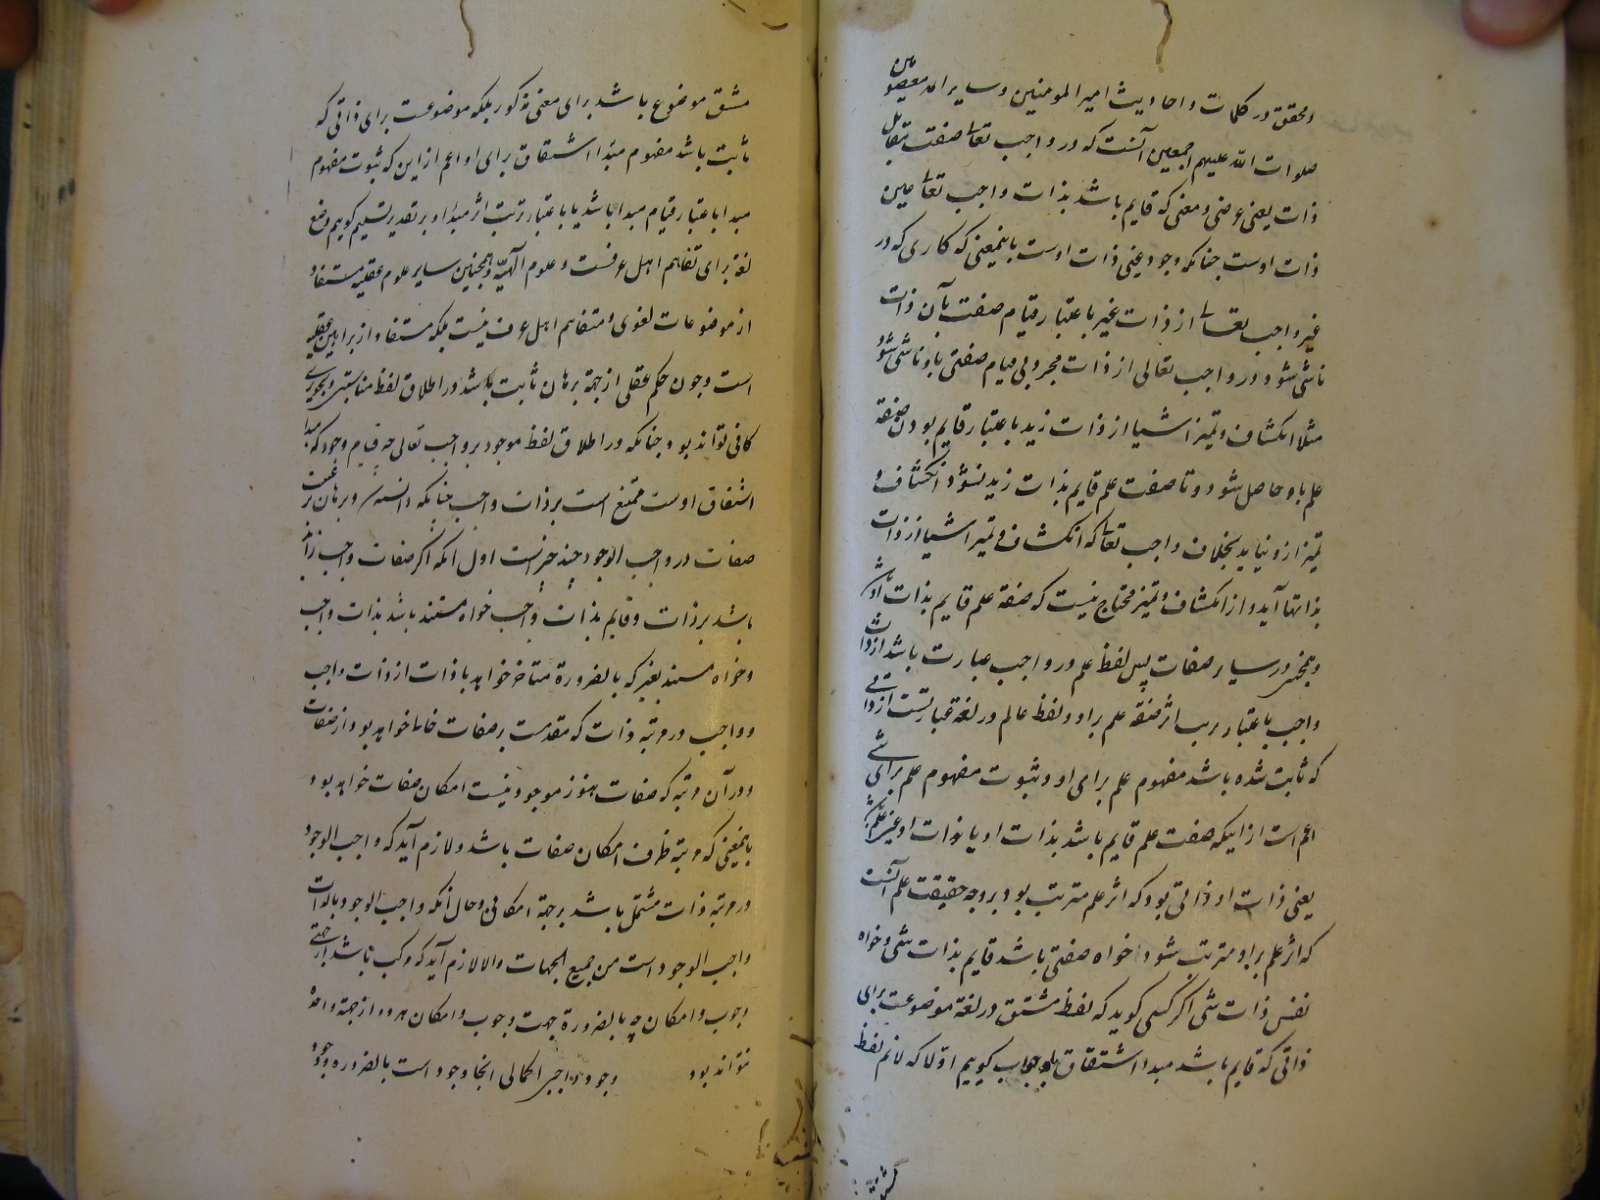 و محقق در کلمات و احادیث امیر المومنین و سایر ائمه معصومین
صلوات الله علیهم اجمعین آنست که در واجب تعالی صفت مقابل
ذات یعنی عرضی و معنی که قایم باشد بذات واجب تعالی عین
ذات اوست چنانکه وجود عین ذات اوست باینمعنی که کاری که در
غیر واجب تعالی از ذات غیر باعتبار قیام صفت بآن ذات
ناشی شود در واجب تعالی از ذات مجرد بی قیام صفتی باو ناشی شود
مثلا انکشاف و تمیز اشیا از ذات زید باعتبار قایم بودن صفة
علم باو حاصل شود و تا صفت علم قایم بذات زید نشود انکشاف و
تمیز ازو نیاید بخلاف واجب تعالی که انکشاف و تمیز اشیا از ذات
بذاتها آید و از انکشاف و تمیز محتاج نیست که صفة علم قایم بذات او باشد
و همچنین در سایر صفات پس لفظ علم در واجب عبارت باشد از ذات
واجب باعتبار ترتب اثر صفة علم برا و و لفظ عالم در لغة عبارتست از ذاتی
که ثابت شده باشد مفهوم علم برای او و ثبوت مفهوم علم برای شی
اعم است از اینکه صفت علم قایم باشد بذات او یا بذات او عین علم باشد
یعنی ذات او ذاتی بود که اثر علم مترتب بود بر وجه حقیقت علم آنست
که اثر علم برا و مترتب شود خواه صفتی باشد قایم بذات شی و خواه
نفس ذات شی اگر کسی کوید که لفظ مشتق در لغة موضوعست برای
ذاتی که قایم باشد مبدا اشتقاق باو جواب کوییم اولا که لانم لفظ
مشتق موضوع باشد برای معنی مذکور بلکه موضوعست برای ذاتی که
ثابت باشد مفهوم مبدا اشتقاق برای او اعم از این که ثبوت مفهوم
مبدا باعتبار قیام مبدا باشد یا باعتبار ترتب اثر مبدا و بر تقدیر تسلیم کوییم وضع
لغة برای تفاهم اهل عرفست و علوم الهیّه و همچنین سایر علوم عقلیه مستفاد
از موضوعات لغوی و متفاهم اهل عرف نیست بلکه مستفاد از براهین عقلیه
است و چون حکم عقلی از جهة برهان ثابت باشد در اطلاق لفظ مناسبتی و تجوزی
کافی تواند بود چنانکه در اطلاق لفظ موجود بر واجب تعالی چه قیام وجود که مبدا
اشتقاق اوست ممتنع است بر ذات واجب چنانکه دانسته و برهان بر عینیت
صفات در واجب الوجود چند چیز است اول آنکه اگر صفات واجب زاید
باشد بر ذات و قایم بذات واجب خواه مستند باشد بذات واجب
و خواه مستند بغیر که بالضرورة متاخر خواهد با ذات از ذات واجب
و واجب در مرتبه ذات که مقدمست بر صفات خالی خواهد بود از صفات
و در آن مرتبه که صفات هنوز موجود نیست امکان صفات خواهد بود
باینمعنی که مرتبه ظرف امکان صفات باشد و لازم آید که واجب الوجود
در مرتبه ذات مشتمل باشد بر جهة امکانی و حال آنکه واجب الوجود بالذات
واجب الوجود است من جمیع الجهات و الا لازم آید که مرکب باشد از جهتی
وجوب و امکان چه بالضرورة جهت وجوب و امکان هر دو از جهة واحدة
نتواند بود وجود واجبی الحالی انحا وجود است بالضروره وجود